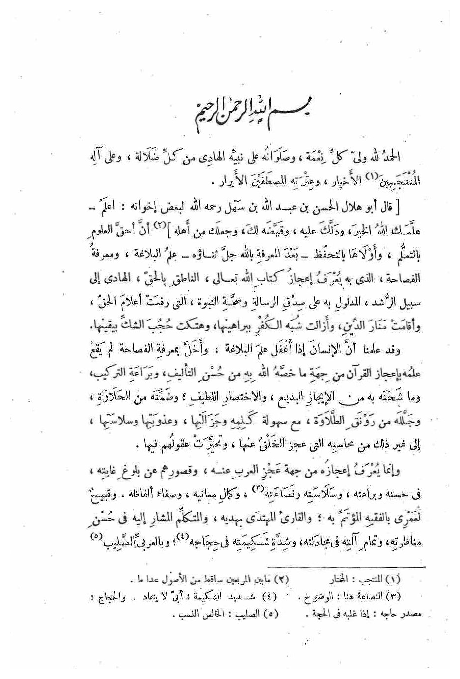 بسم الله الرحمن الرحيم
الحمدُ لله ولىّ كلِّ نِعْمَة ، وصلَوَاتُه على نبيّه الهادِى من كلّ ضَلَالة ، وعلى آلِه
المُنْتَجَبِينَ (١) الأخيار ، وعِتْرَتِه المصطَفَيْنَ الأبرار .
[ قال أبو هلال الحسن بن عبد الله بن سَهْل رحمه الله لبعض إخوانه : اعلم –
علَّمك اللهُ الخيرَ ، ودَلَّكَ عليه ، وقَيَّضَه لكَ ، وجعلك من أهله ] (٢) أنَّ أحقَّ العلوم
بالتعلُّم ، وأَوْلَاها بالتحفّظ – بَعْدَ المعرفةِ بالله جلَّ ثناؤه – علمُ البلاغة ، ومعرفةُ
الفصاحة ، الذى به يُعْرَفُ إعجازُ كتابِ الله تعالى ، الناطقِ بالحقّ ، الهادِى إلى
سبيل الرُّشد ، المدلولِ به على صِدْقِ الرسالةِ وصحَّةِ النبوة ، التى رفعَتْ أعلامَ الحقّ ،
وأقامَتْ منَارَ الدِّينِ ، وأزالت شُبَهَ الكُفْرِ ببراهينها ، وهتكت حُجُبَ الشكّ بيقينها .
وقد علمنا أنَّ الإنسانَ إذا أغفَل علمَ البلاغة ، وأخَلَّ بمعرفة الفصاحة لم يقَعْ
علمُه بإعجازِ القرآن من جِهَةِ ما خصَّهُ الله بِهِ من حُسْنِ التأليفِ ، وبرَاعَةِ التركيبِ ،
وما شَحَنَه به من الإيجازِ البديع ، والاختصارِ اللطيف ؛ وضمَّنَه من الحَلَاوَة ،
وجلَّلَه من رَوْنَقِ الطّلَاوَة ، مع سهولةِ كَلِمِهِ وجَزَالَتِها ، وعذوبتِها وسلاسَتِها ،
إلى غير ذلك من محاسِنِه التى عجز الخَلْقُ عنها ، وتحيَّرَتْ عقولُهم فيها .
وإنما يُعْرَفُ إعجازُه من جهة عَجْزِ العرب عنه ، وقصورِهم عن بلوغ غايتِه ،
فى حسنه وبراعتِه ، وسَلَاسَتِه ونَصَاعَتِه (٣) ، وكمال معانيه ، وصفاء ألفاظه . وقبيحٌ
لَعَمْرِى بالفقيه المُؤْتَمِّ به ؛ والقارئِ المهتدَى بهديه ، والمتكلّمِ المشارِ إليه فى حُسْنِ
مناظَرَتِه ، وتمامِ آلتِه فى مجادلته ، وشِدَّةِ شَكِيمَتِه فى حِجاجه (٤) ؛ وبالعربىّ الصَّليب (٥)
(١) المنتجب : المختار
(٢) مابين المربعين ساقط من الأصول عدا ط .
(٣) النصاعة هنا : الوضوح .
(٤) شديد الشكيمة : أبىّ لا ينقاد . والحجاج :
مصدر حاجه : إذا غلبه فى الحجة .
(٥) الصليب : الخالص النسب .